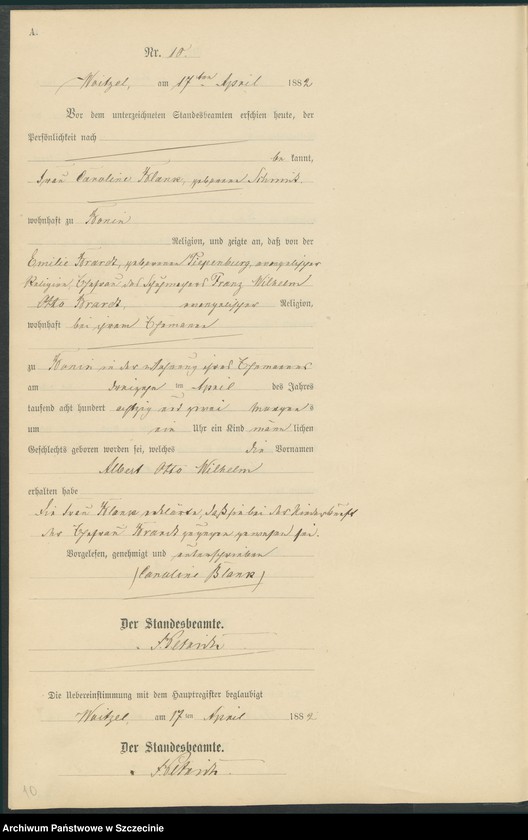 A.
Nr. 10.
Woitzel, am 17ten April 1882
Vor dem unterzeichneten Standesbeamten erschien heute, der
Persönlichkeit nach
be kannt,
Frau Caroline Blank, geborene
wohnhaft zu Konin
Religion, und zeigte an, daß von der
Emilie geborenen Piepenburg, evangelischer
Religion Ehefrau des Franz Wilhelm
Otto evangelischer Religion,
wohnhaft bei ihrem Ehemanne
zu Konin in der Wohnung ihres Ehemannes
am im April des Jahres
tausend acht hundert achtzig und zwei Morgens
um ein Uhr ein Kind männ lichen
Geschlechts geboren worden sei, welches die Vornamen
Albert Otto Wilhelm
erhalten habe
Die Frau Blank erklärte, daß sie bei der Niederkunft
der Ehefrau zugegen gewesen sei.
Vorgelesen, genehmigt und unterschrieben
(Caroline Blank)
Der Standesbeamte.
Die Uebereinstimmung mit dem Hauptregister beglaubigt
Woitzel, am 17ten April 1882
Der Standesbeamte.
10
Archiwum Państwowe w Szczecinie